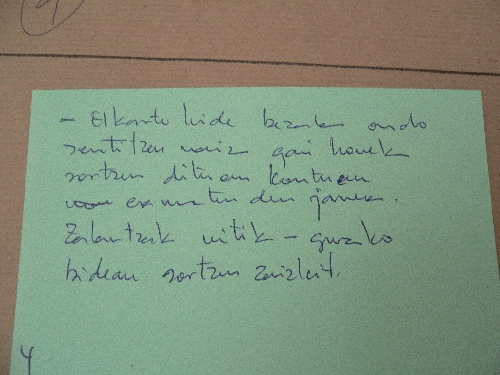 4
- Elkarte kide bezala ondo
sentitzen naiz gai honek
sortzen dituen kontuan
eramaten den
Zalantzak nitik - gurako
bidean sortzen zaizkit.
4